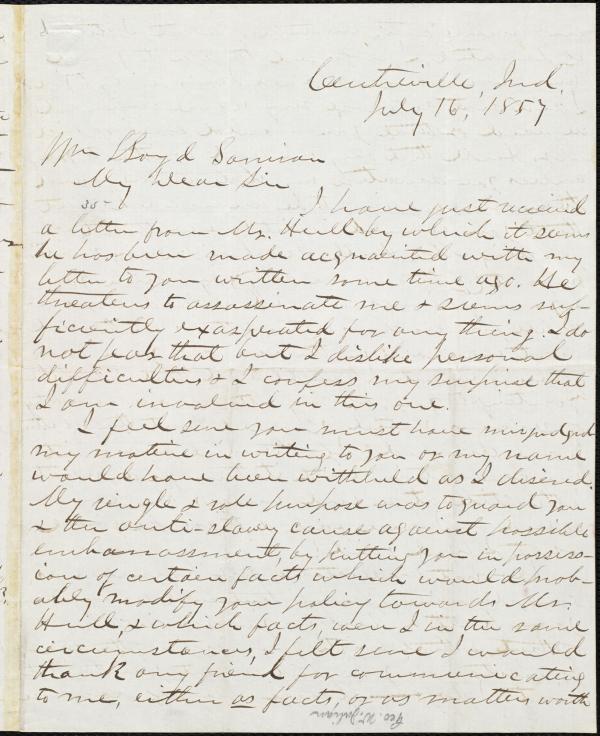 Centreville, Ind.
July 16, 1857
Wm Lloyd Garrison
My Dear Sir
I have just received
a letter from Mr. Hull by which it seems
he has been made acquainted with my
letter to you written some time ago. He
threatens to assassinate me & seems suf-
ficiently exasperated for any thing. I do
not fear that but I dislike personal
difficulties & I confess my surprise that
I am involved in this one.
I feel sure you must have misjudged
my motive in writing to you or my name
would have been withheld as I desired.
My single & sole purpose was to guard you
& the anti-slavery cause against possible
embarrassment, by putting you in possess-
ion of certain facts which would prob-
ably modify your policy towards Mr.
Hull, & which facts, were I in the same
circumstances, I felt sure I would
thank any friend for communicating
to me, either as facts, or as matters worth
Geo. W. Julian